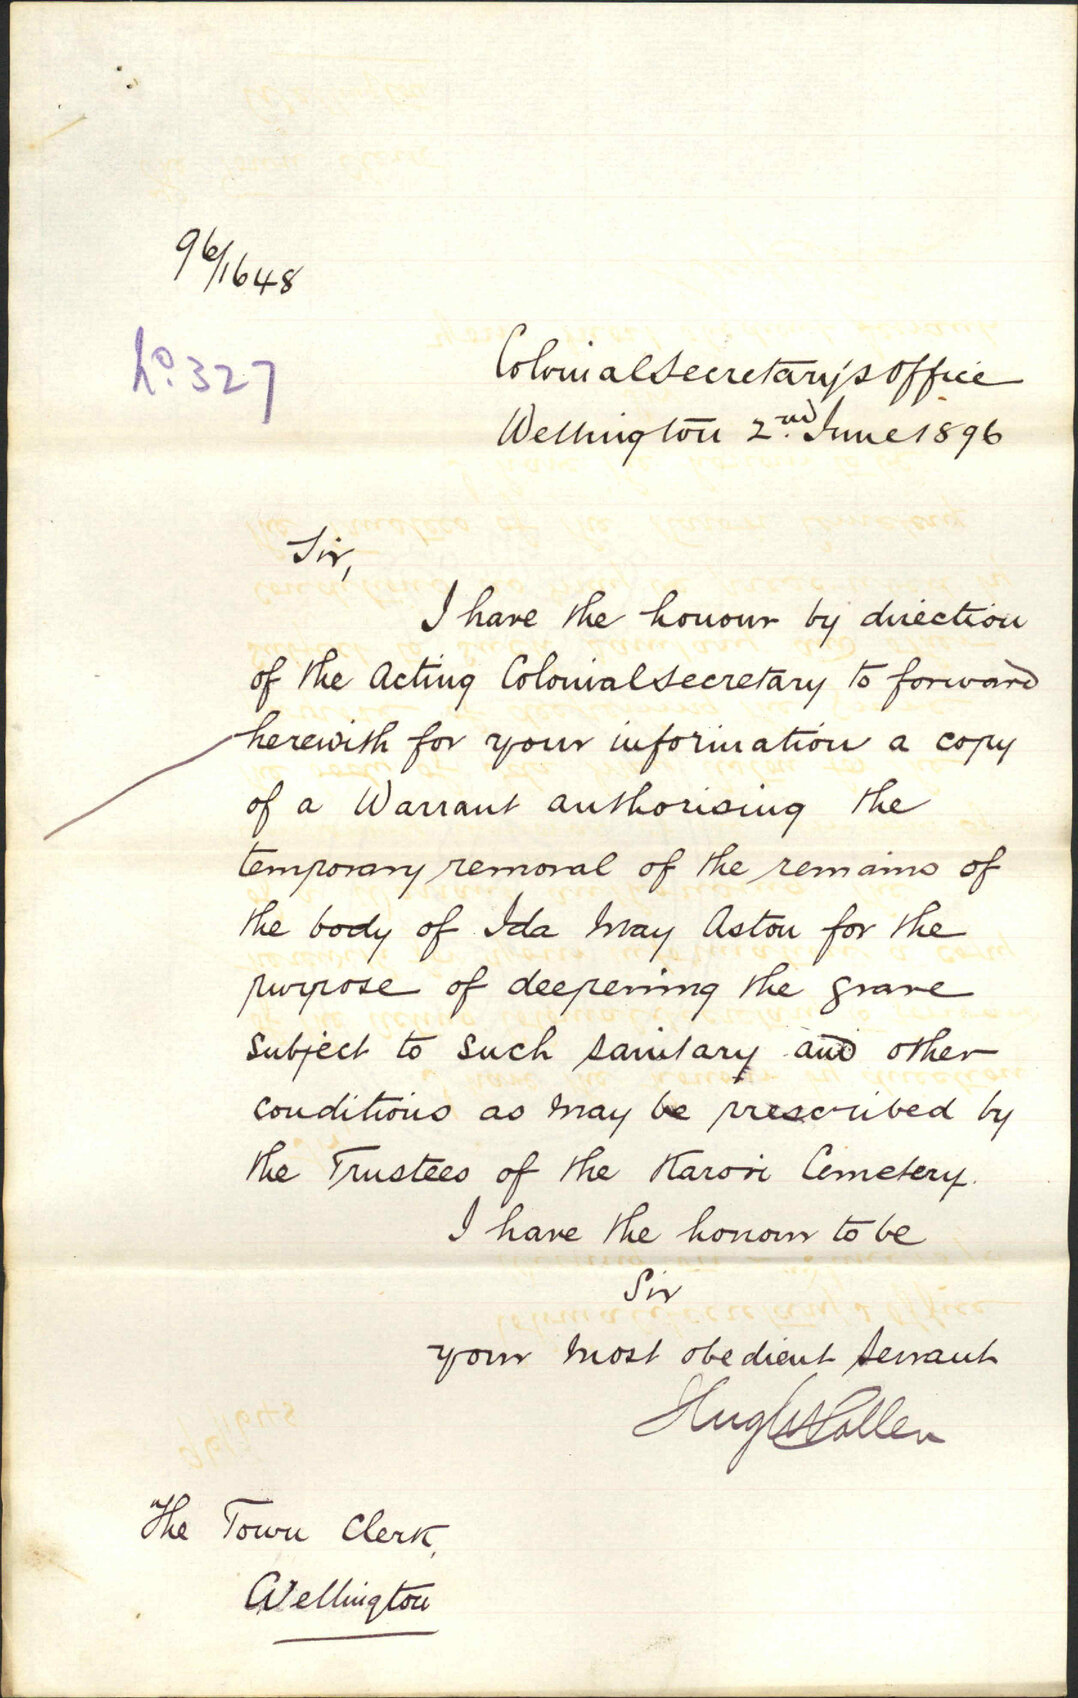 96/1648
No. 327
Colonial Secretary's Office
Wellington 2nd. June 1896
Sir,
I have the honour by direction
of the Acting Colonial Secretary to forward
herewith for your information a copy
of a Warrant authorising the
temporary removal of the remains of
the body of Ida May Aston for the
purpose of deepening the grave
subject to such sanitary and other
conditions as may be prescribed by
the Trustees of the Karori Cemetery.
I have the honour to be
Sir
your most obedient servant
Hugh Pollen
The Town Clerk,
Wellington